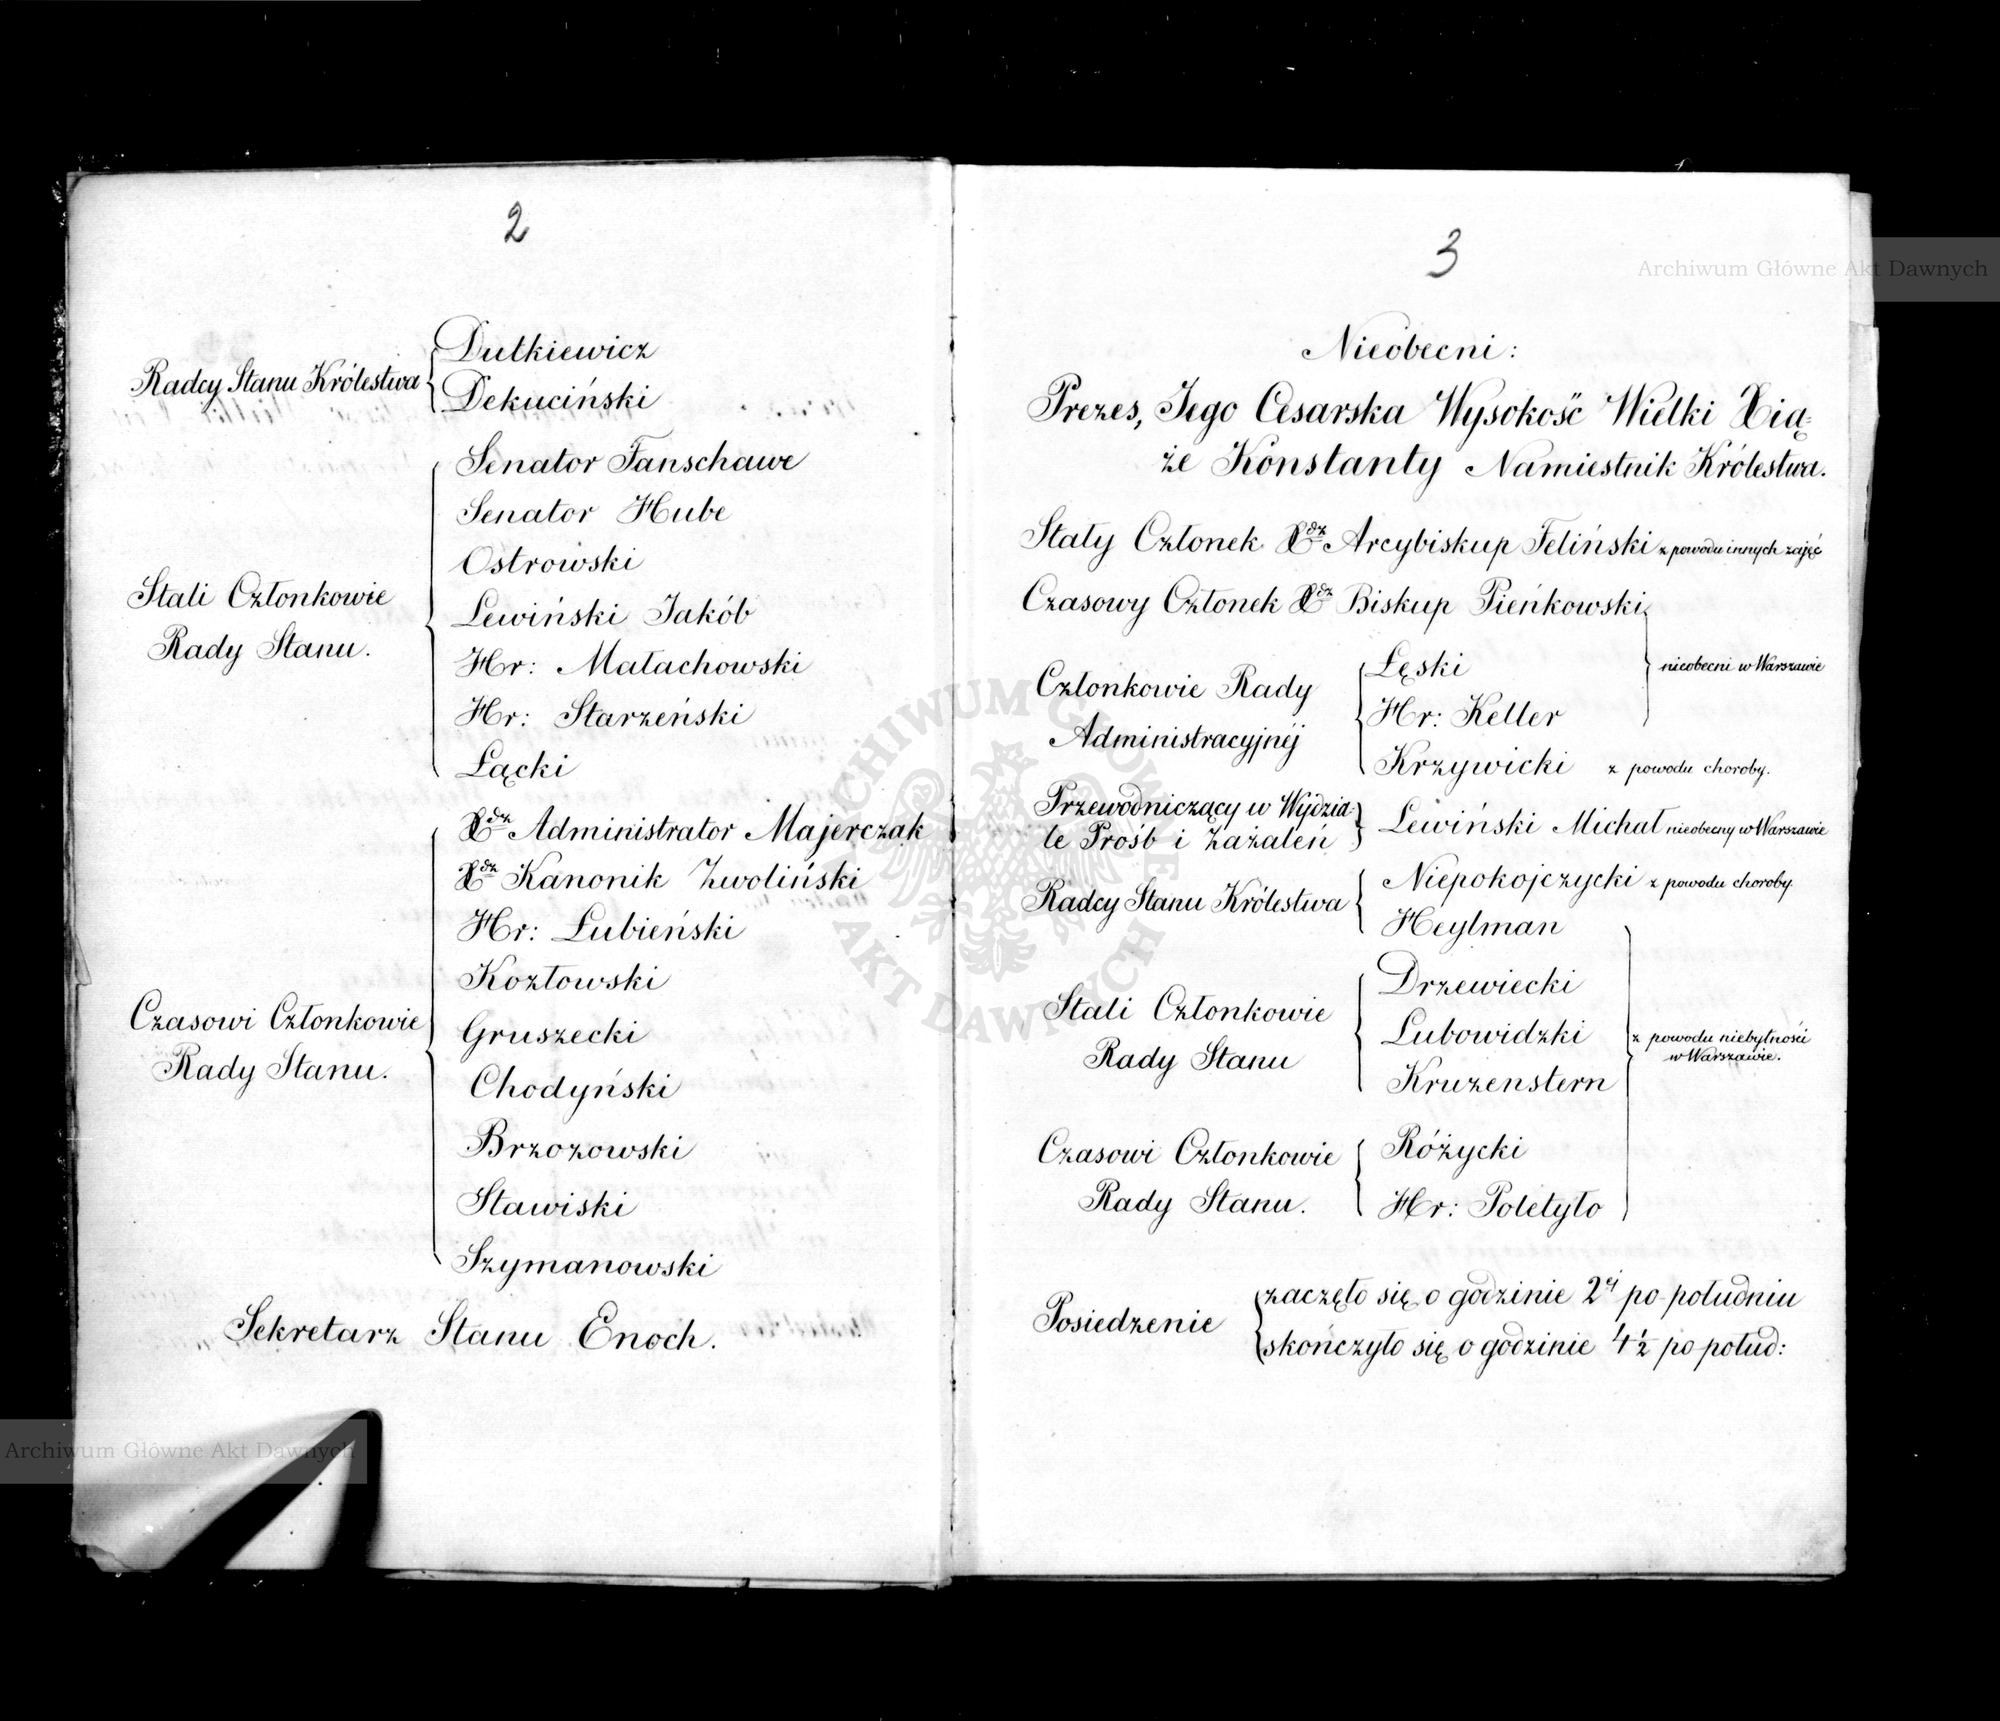 2
Radcy Stanu Królestwa
Dutkiewicz
Dekuciński
Stali Członkowie
Rady Stanu.
Senator Fanschawe
Senator Hube
Ostrowski
Lewiński Jakób
Hr: Małachowski
Hr: Starzeński
Łącki
Czasowi Członkowie
Rady Stanu.
Xdz Administrator Majerczak
Xdz Kanonik Zwoliński
Hr: Łubieński
Kozłowski
Gruszecki
Chodyński
Brzozowski
Stawiski
Szymanowski
Sekretarz Stanu Enoch.
3
Nieobecni:
Prezes, Jego Cesarska Wysokość Wielki Xią-
że Konstanty Namiestnik Królestwa.
Stały Członek Xdz Arcybiskup Feliński z powodu innych zajęć
Czasowy Członek Xdz Biskup Pieńkowski
Członkowie Rady
Administracyjnéj
Łęski
Hr: Keller
nieobecni w Warszawie
Krzywicki z powodu choroby.
Przewodniczący w Wydzia-
le Próśb i Zażaleń
Lewiński Michał nieobecny w Warszawie
Radcy Stanu Królestwa
Niepokojczycki z powodu choroby
Heylman
Stali Członkowie
Rady Stanu
Drzewiecki
Lubowidzki
Kruzenstern
z powodu niebytności
w Warszawie.
Czasowi Członkowie
Rady Stanu.
Różycki
Hr: Poletyło
Posiedzenie
zaczęło się o godzinie 2éj po południu
skończyło się o godzinie 4½ po połud:
Archiwum Główne Akt Dawnych
Archiwum Główne Akt Dawnych
ARCHIWUM GŁÓWNE
AKT DAWNYCH